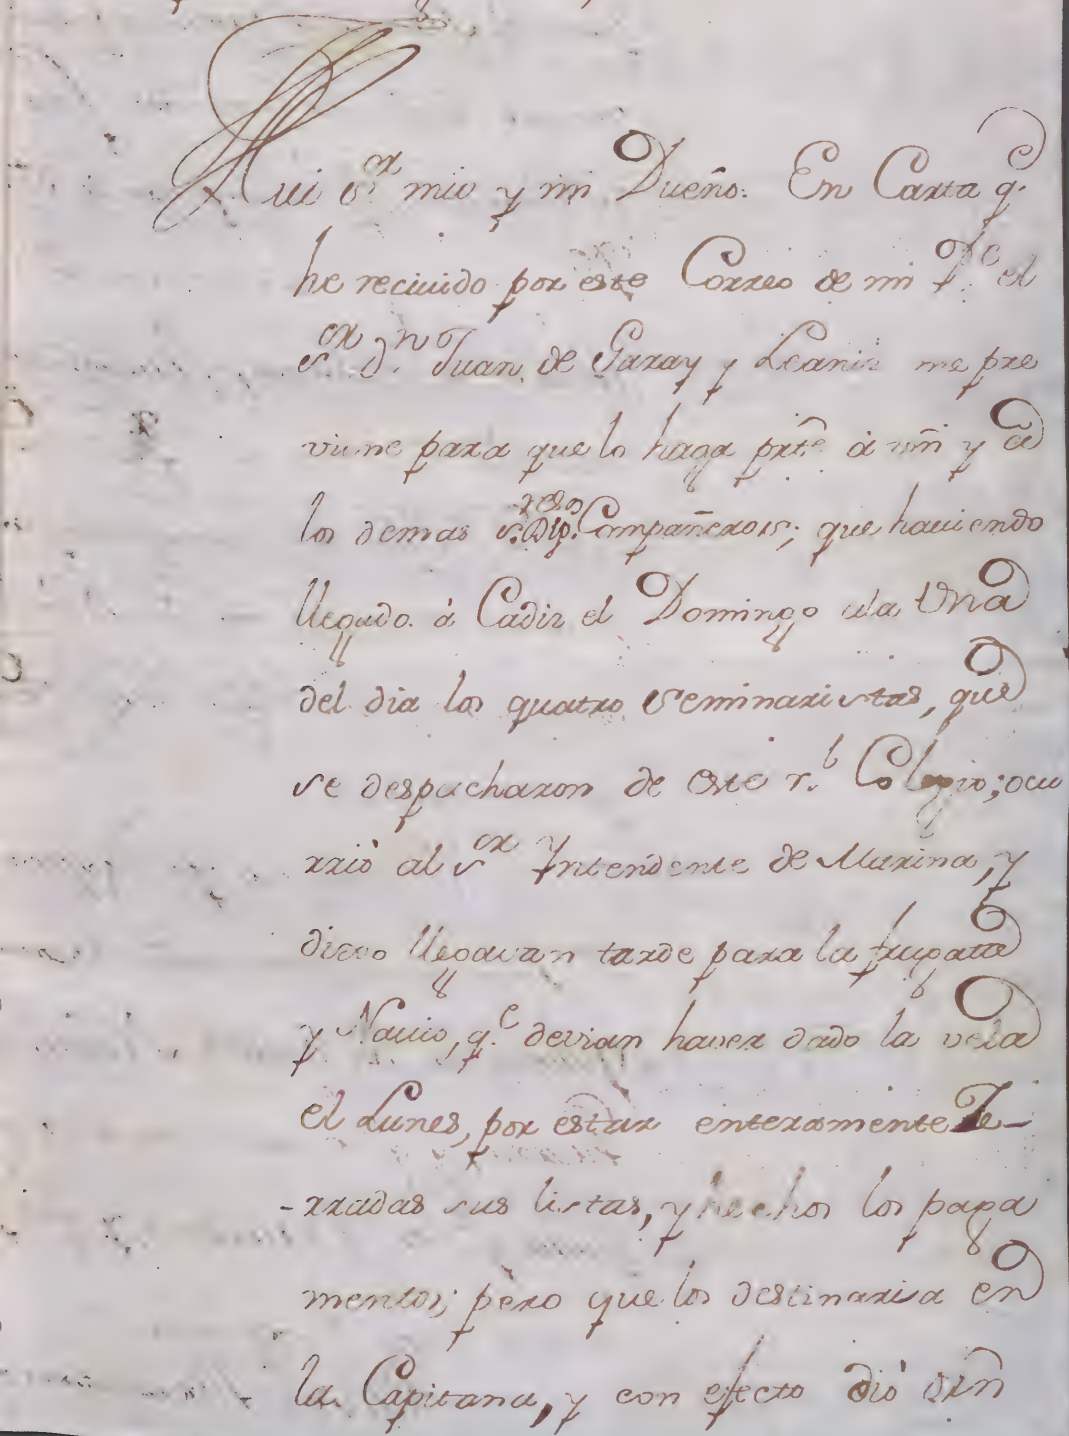 Mui S.or mio y mi Dueño: En Carta q.e
he reciuido por este Correo de mi P.e el
S.or D.n Juan de Garay y Leaniz me pre
viene para que lo haga prẽte à vm̃ y a
los demas S.res Dip.dos Compañeros; que haviendo
llegado à Cadiz el Domingo ala Una
del dia los quatro Seminaristas, que
se despacharon de este r.l Colegio; ocu
rrió al S.or Yntendente de Marina, y
dixo llegavan tarde para la fragata
y Navio, q.e devian haver dado la vela
el Lunes, por estar enteramente Ze-
-rradas sus listas, y hechos los paga
mentos; pero que los destinaria en
la Capitana, y con efecto diò orñ